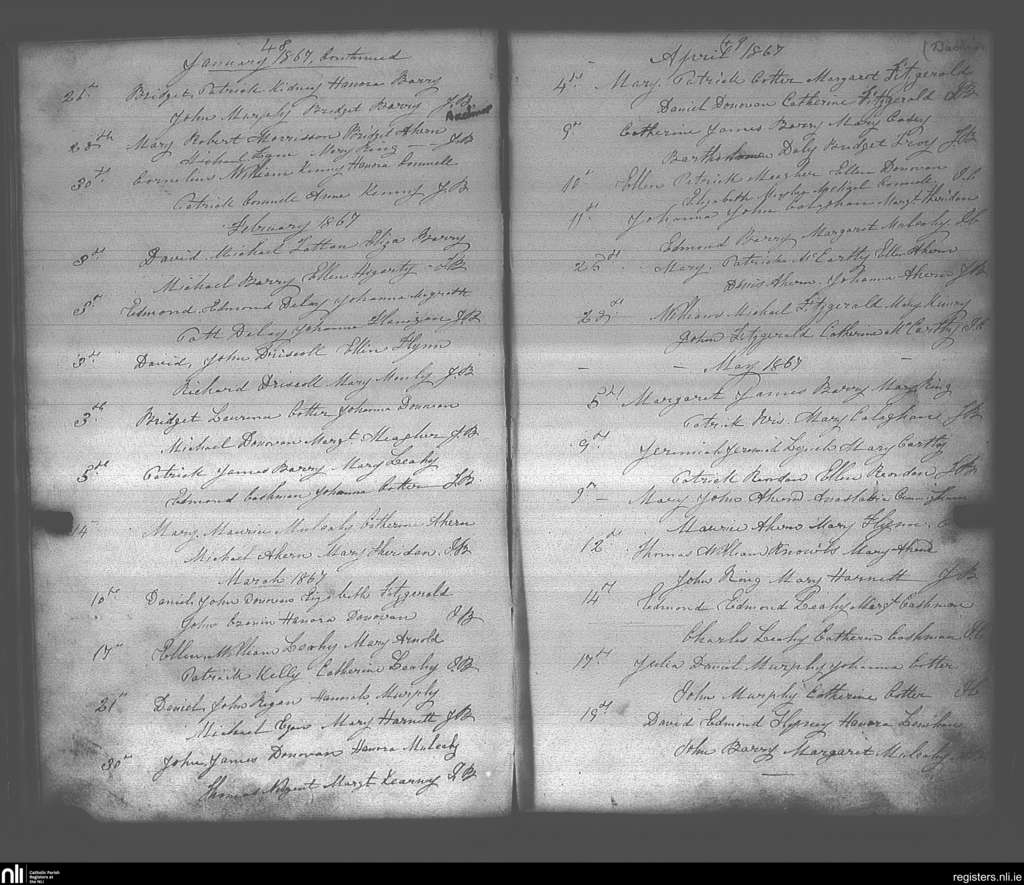 48
January 1867, Continued
26th Bridget, Patrick Kidney Hanora Barry
John Murphy Bridget Barry J.B.
28th Mary Robert Morrisson Bridget Ahern
Michael Egan Mary Ring J.B
30th Cornelius William Kenny Hanora Connell
Patrick Connell Anne Kenny J.B
February 1867
3rd David, Michael Eliza Barry
Michael Barry Ellen Hegarty J.B
5th Edmond, Edmond Delay Johanna Mcgrath
Patt Delay Johanna Flanigan J.B
3rd David, John Driscoll Ellen Flynn
Richard Driscoll Mary J.B
3rd Bridget Laurence Cotter Johanna Donovan
Michael Donovan Margt Meagher J.B
5th Patrick James Barry Mary Leahy
Edmond Cashman Johanna Cotter J.B.
14 Mary, Maurice Mulcahy Catherine Ahern
Michael Ahern Mary Sheridan J.B
March 1867
10th Daniel, John Donovan Elizabeth Fitzgerald
John Cronin Hanora Donovan J.B
17th Ellen, William Leahy Mary Arnold
Patrick Kelly Catherine Leahy J.B
21st Daniel, John Regan Hannah Murphy
Michael Egan Mary Harnett J.B
30th John, James Donovan Hanora Mulcahy
Thomas Nugent Margt Kearney J.B
49
April 1867
4th Mary, Patrick Cotter Margaret Fitzgerald
Daniel Donovan Catherine Fitzgerald J.B
9th Catherine James Barry Mary Casey
Bartholomew Daly Bridget Troy J.B
10th Ellen Patrick Meagher Ellen Donovan
Elizabeth Connell
11th Johanna John Calaghan Margt Sheridan
Edmond Barry Margaret Mulcahy
Mary, Patrick McCarthy Ellen Ahern
Denis Ahern, Johanna Ahern J.B
28th William Michael Fitzgerald Mary
John Fitzgerald Catherine McCarthy
- - May 1867 -
5th Margaret James Barry Mary Ring
Patrick Mary Calaghane J.B
9th Jeremiah Jeremiah Mary Carthy
Patrick Reordan Ellen Reordan J.B
9th - Mary John Ahern Anastatia Cunningham
Maurice Ahern Mary Flynn
12th Thomas William Knowles Mary Ahern
John Ring Mary Harnett J.B
14th Edmond Edmond Leahy Margt Cashman
Charles Leahy Catherine Cashman
17th Julia Daniel Murphy Johanna Cotter
John Murphy Catherine Cotter
19th David Edmond Hanora Lenihan
John Barry Margaret Mulcahy
nli
Catholic Parish
Registers at
the NLI
registers.nli.ie